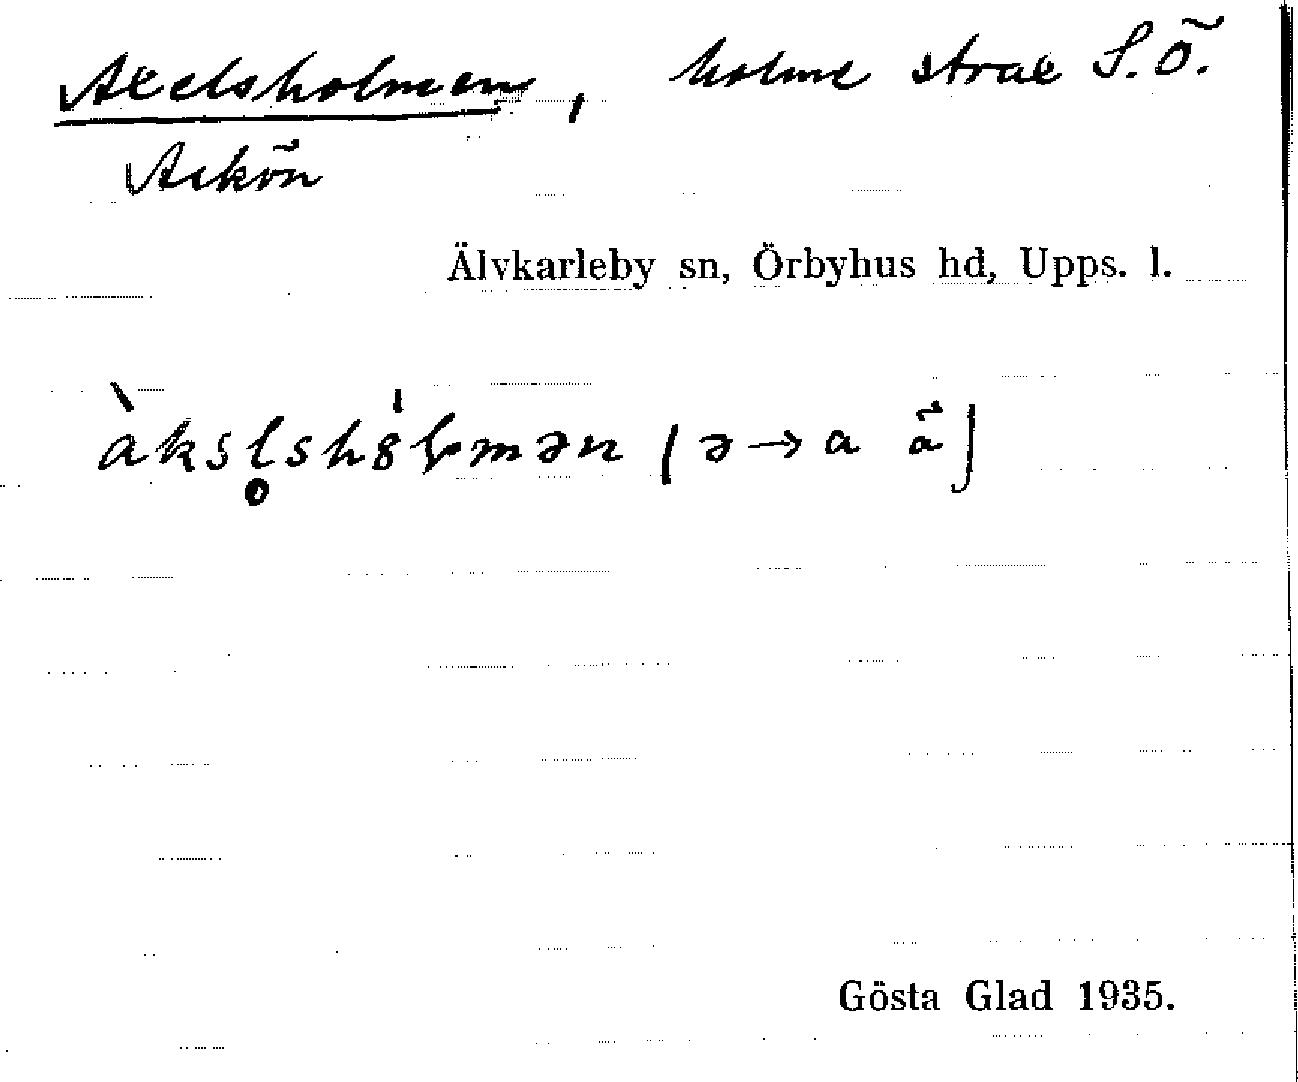 Axelsholmen, holme strax S.Ö.
Askön
Älvkarleby sn, Örbyhus hd, Upps. l.
Gösta Glad 1935.